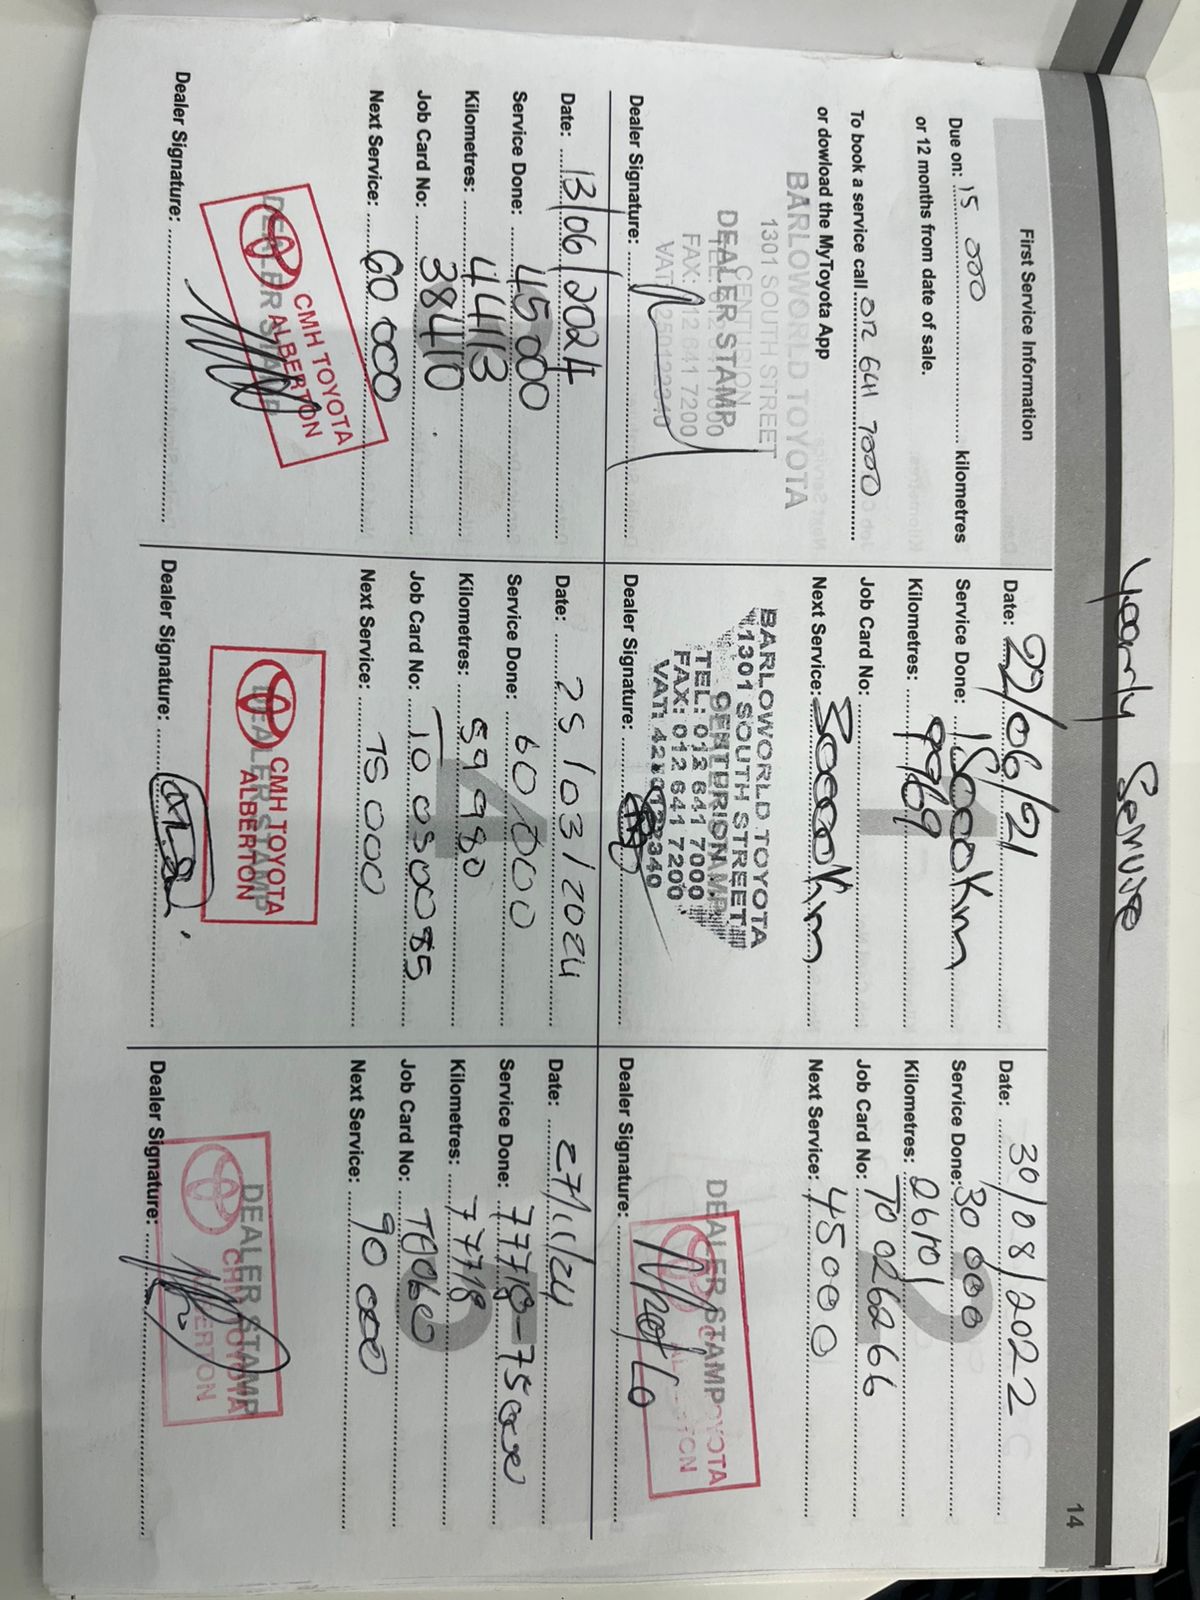 Yearly Service
14
First Service Information
Due on: 15 000 kilometres
or 12 months from date of sale.
To book a service call 012 641 7000
or dowload the MyToyota App
BARLOWORLD TOYOTA
1301 SOUTH STREET
CENTURION
DEALER STAMP
FAX: 012 641 7200
Dealer Signature:
Date: 22/06/21
Service Done: 15000Km
Kilometres: 9969
Job Card No:
Next Service: 30000Km
1
BARLOWORLD TOYOTA
1301 SOUTH STREET
CENTURION
TEL: 012 641 7000
FAX: 012 641 7200
Dealer Signature:
Date: 30/08/2022
Service Done: 30 000
Kilometres: 26101
Job Card No: T0026266
Next Service: 45000
2
DEALER STAMP
TOYOTA
Dealer Signature:
Date: 13/06/2024
Service Done: 45000
Kilometres: 44413
Job Card No: 38410
Next Service: 60 000
DEALER STAMP
CMH TOYOTA
ALBERTON
Dealer Signature:
Date: 25/03/2024
Service Done: 60 000
Kilometres: 59980
Job Card No: T0030085
Next Service: 75000
4
DEALER STAMP
CMH TOYOTA
ALBERTON
Dealer Signature:
Date: 27/11/24
Service Done: 77718-75000
Kilometres: 77718
Job Card No:
Next Service: 90 000
DEALER STAMP
CMH TOYOTA
ALBERTON
Dealer Signature: